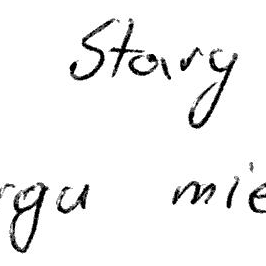 Stary
rgu mie